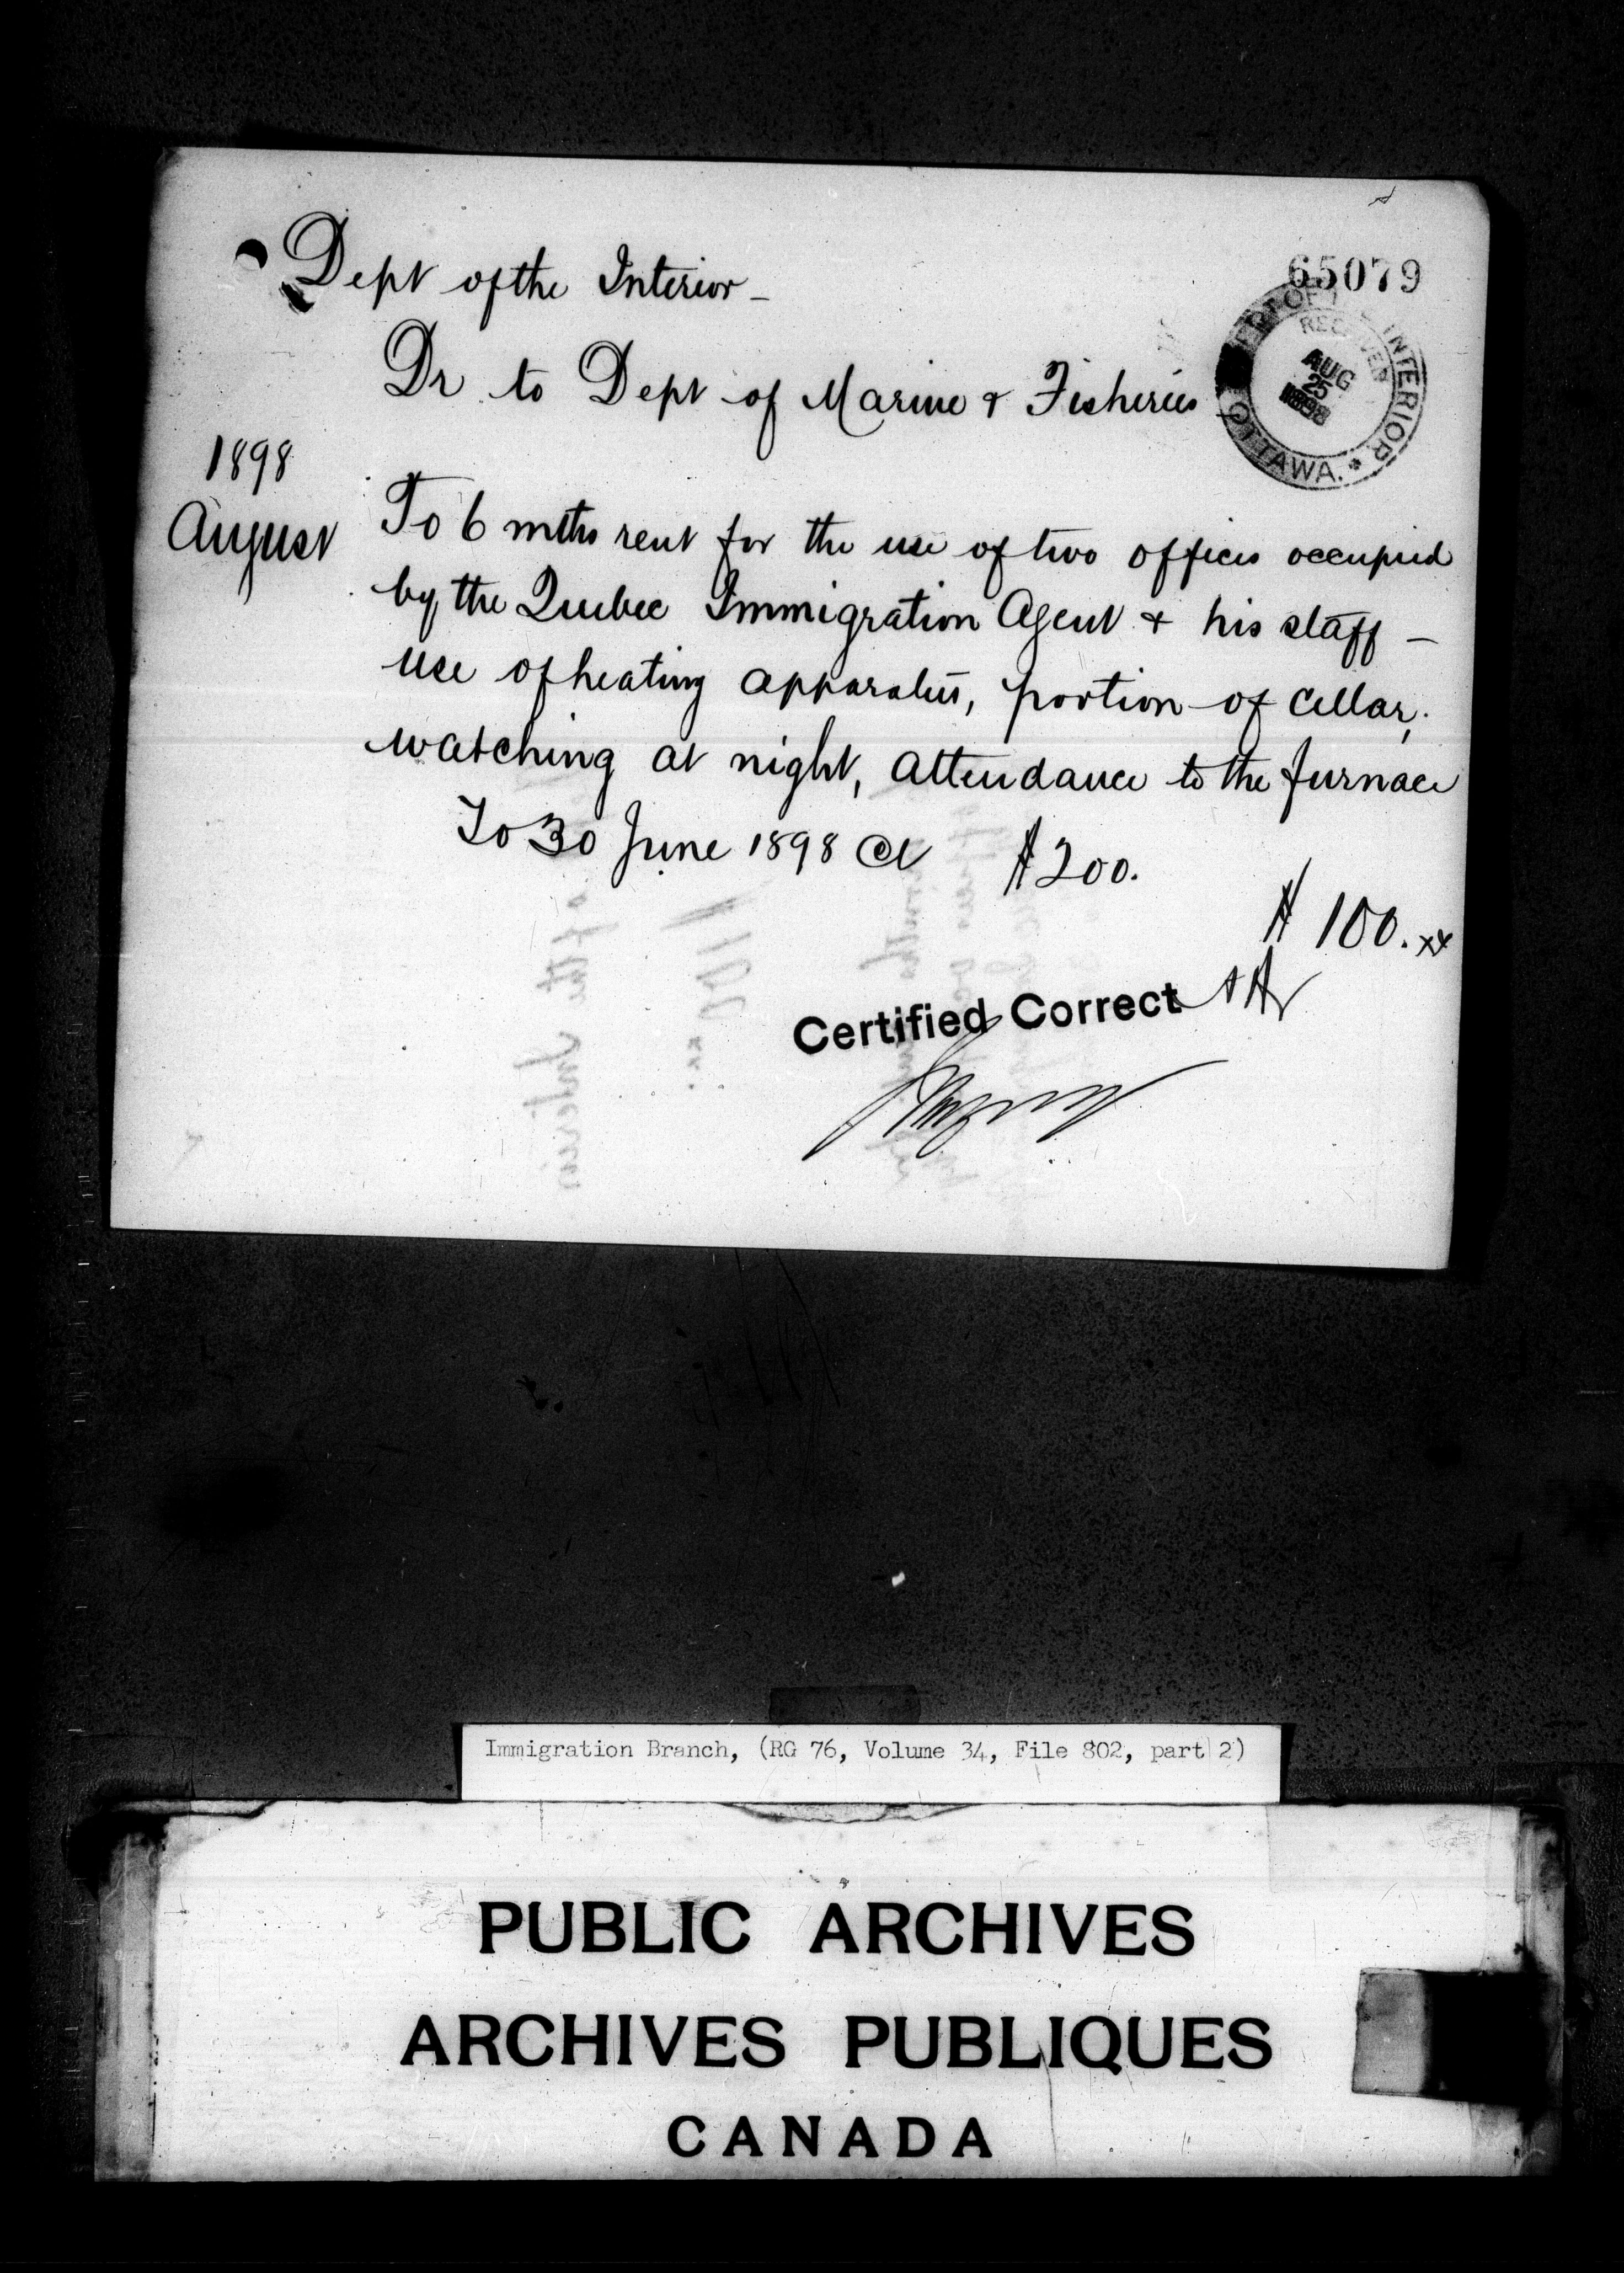 65079
Dept of the Interior -
Dr to Dept of Marine & Fisheries
DEPT OF THE INTERIOR
RECEIVED
AUG
25
1898
OTTAWA.
1898
August
To 6 mths rent for the use of two offices occupied
by the Quebec Immigration Agent & his staff -
use of heating apparatus, portion of cellar,
watching at night, attendance to the furnace
To 30 June 1898 at $200.
$ 100.xx
Certified Correct
Immigration Branch, (RG 76, Volume 34, File 802, part 2)
PUBLIC ARCHIVES
ARCHIVES PUBLIQUES
CANADA